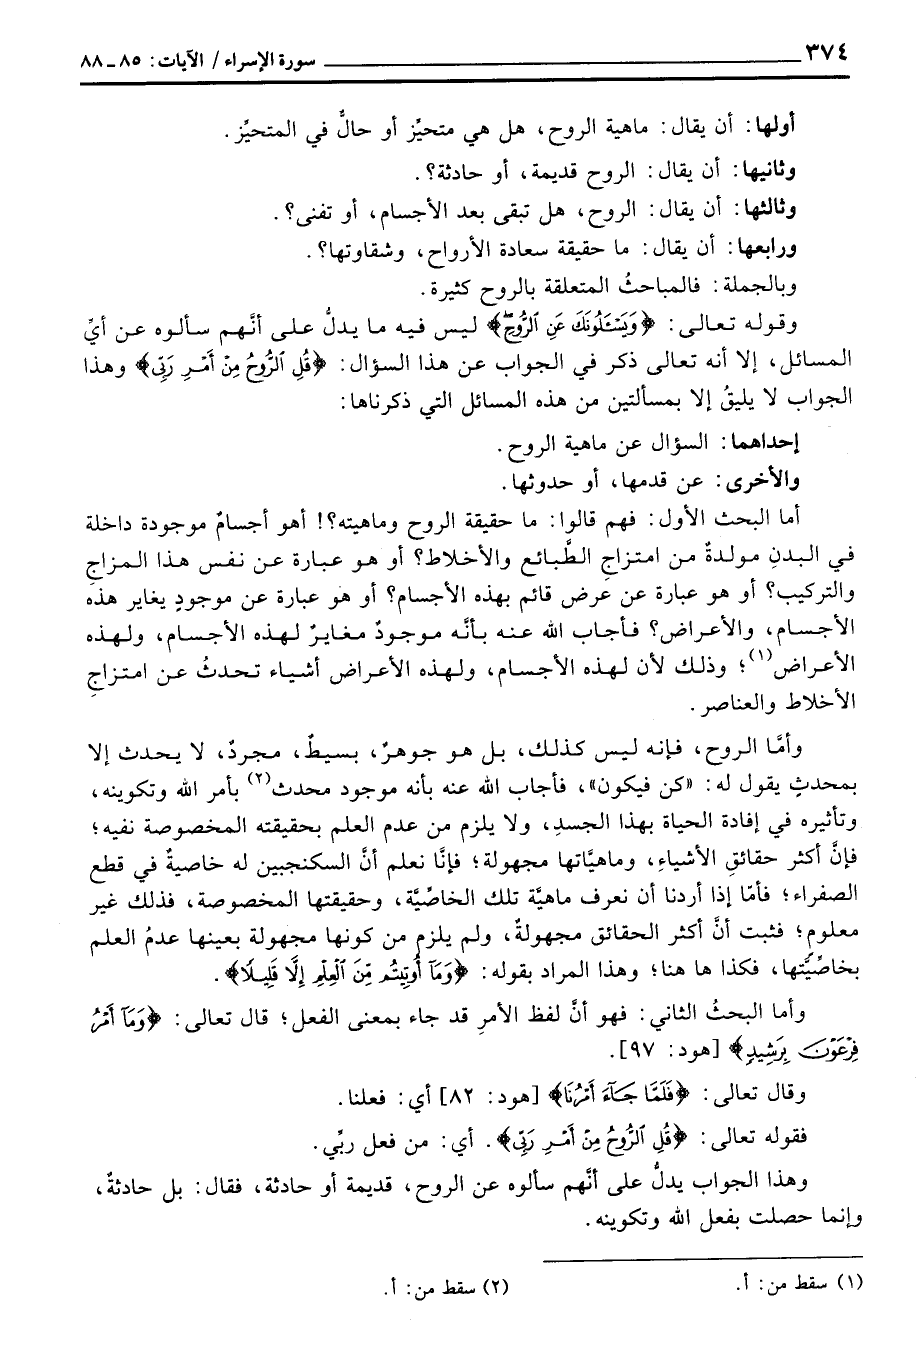 ٣٧٤ سورة الإسراء / الآيات: ٨٥ ـ ٨٨
أولها: أن يقال: ماهية الروح، هل هي متحيِّز أو حالٌّ في المتحيِّز.
وثانيها: أن يقال: الروح قديمة، أو حادثة؟.
وثالثها: أن يقال: الروح، هل تبقى بعد الأجسام، أو تفنى؟.
ورابعها: أن يقال: ما حقيقة سعادة الأرواح، وشقاوتها؟.
وبالجملة: فالمباحثُ المتعلقة بالروح كثيرة.
وقوله تعالى: ﴿وَيَسْـَٔلُونَكَ عَنِ ٱلرُّوحِۖ﴾ ليس فيه ما يدلُّ على أنَّهم سألوه عن أيِّ
المسائل، إلا أنه تعالى ذكر في الجواب عن هذا السؤال: ﴿قُلِ ٱلرُّوحُ مِنْ أَمْرِ رَبِّي﴾ وهذا
الجواب لا يليقُ إلا بمسألتين من هذه المسائل التي ذكرناها:
إحداهما: السؤال عن ماهية الروح.
والأخرى: عن قدمها، أو حدوثها.
أما البحث الأول: فهم قالوا: ما حقيقة الروح وماهيته؟! أهو أجسامٌ موجودة داخلة
في البدنِ مولدةٌ من امتزاجِ الطَّبائع والأخلاط؟ أو هو عبارة عن نفس هذا المزاجِ
والتركيب؟ أو هو عبارة عن عرض قائم بهذه الأجسام؟ أو هو عبارة عن موجودٍ يغاير هذه
الأجسام، والأعراض؟ فأجاب الله عنه بأنَّه موجودٌ مغايرٌ لهذه الأجسام، ولهذه
الأعراض(١)؛ وذلك لأن لهذه الأجسام، ولهذه الأعراض أشياء تحدثُ عن امتزاجِ
الأخلاط والعناصر.
وأمَّا الروح، فإنه ليس كذلك، بل هو جوهرٌ، بسيطٌ، مجردٌ، لا يحدث إلا
بمحدثٍ يقول له: «كن فيكون»، فأجاب الله عنه بأنه موجود محدث(٢) بأمر الله وتكوينه،
وتأثيره في إفادة الحياة بهذا الجسدِ، ولا يلزم من عدم العلم بحقيقته المخصوصة نفيه؛
فإنَّ أكثر حقائقِ الأشياءِ، وماهيَّاتها مجهولة؛ فإنَّا نعلم أنَّ السكنجبين له خاصيةٌ في قطع
الصفراء؛ فأمّا إذا أردنا أن نعرف ماهيَّة تلك الخاصِّيَّة، وحقيقتها المخصوصة، فذلك غير
معلوم؛ فثبت أنَّ أكثر الحقائق مجهولةٌ، ولم يلزم من كونها مجهولة بعينها عدمُ العلم
بخاصِّيَّتها، فكذا ها هنا؛ وهذا المراد بقوله: ﴿وَمَآ أُوتِيتُم مِّنَ ٱلْعِلْمِ إِلَّا قَلِيلًا﴾.
وأما البحثُ الثاني: فهو أنَّ لفظ الأمرِ قد جاء بمعنى الفعل؛ قال تعالى: ﴿وَمَآ أَمْرُ
فِرْعَوْنَ بِرَشِيدٍ﴾ [هود: ٩٧].
وقال تعالى: ﴿فَلَمَّا جَآءَ أَمْرُنَا﴾ [هود: ٨٢] أي: فعلنا.
فقوله تعالى: ﴿قُلِ ٱلرُّوحُ مِنْ أَمْرِ رَبِّي﴾. أي: من فعل ربِّي.
وهذا الجواب يدلُّ على أنَّهم سألوه عن الروح، قديمة أو حادثة، فقال: بل حادثةٌ،
وإنما حصلت بفعل الله وتكوينه.
(١) سقط من: أ. (٢) سقط من: أ.